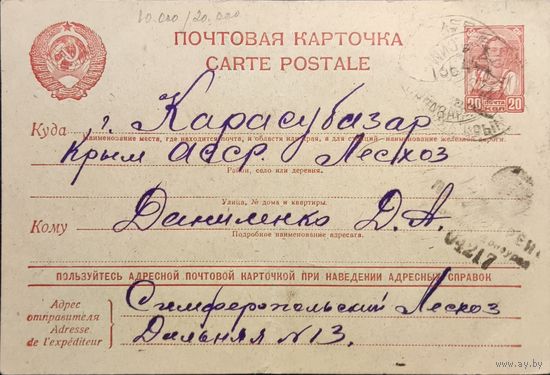 10.000/20.000
ПОЧТОВАЯ КАРТОЧКА
CARTE POSTALE
20 ПОЧТА 20
Куда г. Карасубазар
Наименование места, где находится почта, и области или края, а для станций—наименование железной дороги.
Крым АССР. Лесхоз
Район, село или деревня.
Улица, № дома и квартиры.
Кому Даниленко Д.А.
Подробное наименование адресата.
04217
ПОЛЬЗУЙТЕСЬ АДРЕСНОЙ ПОЧТОВОЙ КАРТОЧКОЙ ПРИ НАВЕДЕНИИ АДРЕСНЫХ СПРАВОК
Адрес Симферопольский Лесхоз
отправителя
Adresse Дальняя N 13.
de l'expéditeur
www.ay.by